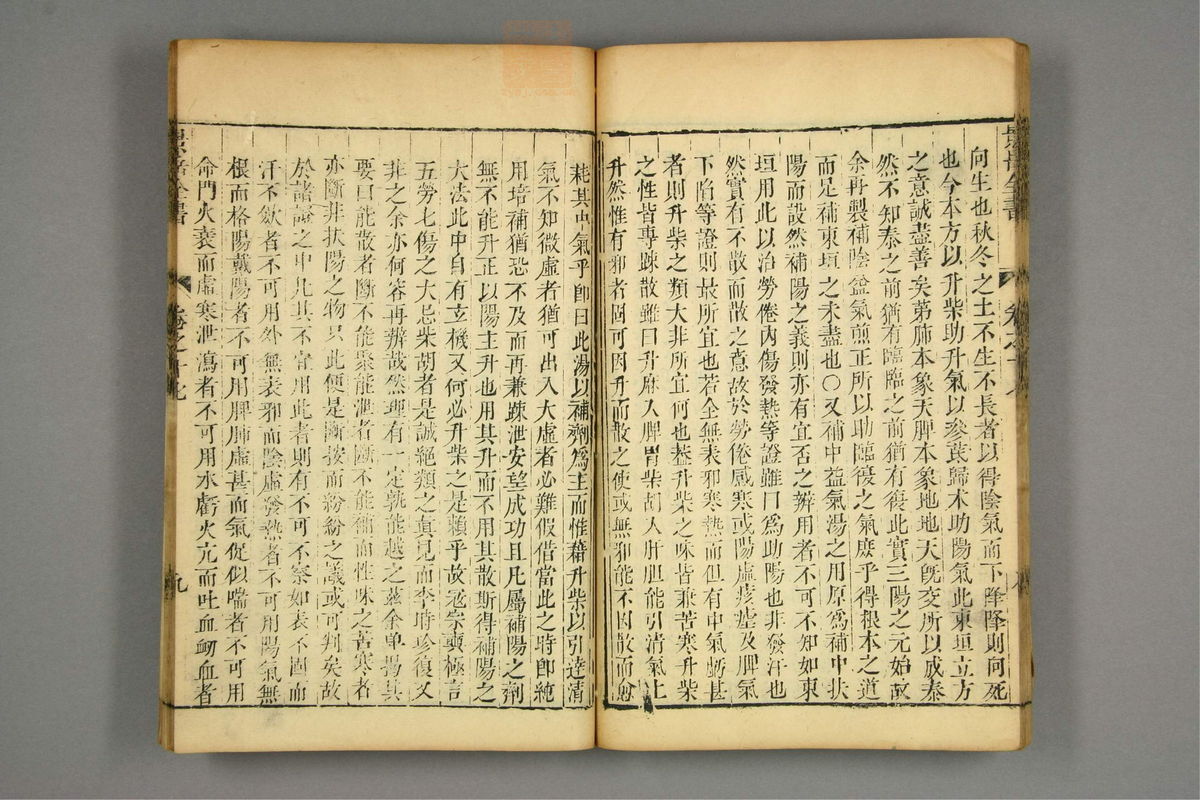 景岳全書
卷之十七
向生也秋冬之土不生不長者以得陰氣而下降降則向死
也今本方以升柴助升氣以參芪歸术助陽氣此東垣立方
之意誠盡善矣第肺本象天脾本象地地天既交所以成泰
然不知泰之前猶有臨臨之前猶有復此實三陽之元始故
余再製補陰益氣煎正所以助臨復之氣庶乎得根本之道
而足補東垣之未盡也○又補中益氣湯之用原為補中扶
陽而設然補陽之義則亦有宜否之辨用者不可不知如東
垣用此以治勞倦內傷發熱等證雖曰為助陽也非發汗也
然實有不散而散之意故於勞倦感寒或陽虛痎瘧及脾氣
下陷等證則最所宜也若全無表邪寒熱而但有中氣虧甚
者則升柴之類大非所宜何也葢升柴之味皆兼苦寒升柴
之性皆專踈散雖曰升麻入脾胃柴胡入肝胆能引清氣上
升然惟有邪者固可因升而散之使或無邪能不因散而愈
耗其中氣乎卽曰此湯以補劑為主而惟藉升柴以引達清
氣不知微虛者猶可出入大虛者必難假借當此之時卽純
用培補猶恐不及而再兼踈泄安望成功且凡屬補陽之劑
無不能升正以陽主升也用其升而不用其散斯得補陽之
大法此中自有玄機又何必升柴之是賴乎故宼宗奭極言
五勞七傷之大忌柴胡者是誠絕類之真見而李時珍復又
非之余亦何容再辨哉然理有一定孰能越之茲余单揭其
要曰能散者斷不能聚能泄者斷不能補而性味之苦寒者
亦斷非扶陽之物只此便是斷按而紛紛之議或可判矣故
於諸證之中凡其不宜用此者則有不可不察如表不固而
汗不歛者不可用外無表邪而陰虛發熱者不可用陽氣無
根而格陽戴陽者不可用脾肺虛甚而氣促似喘者不可用
命門火衰而虛寒泄瀉者不可用水虧火亢而吐血衂血者
景岳全書
卷之十七
九